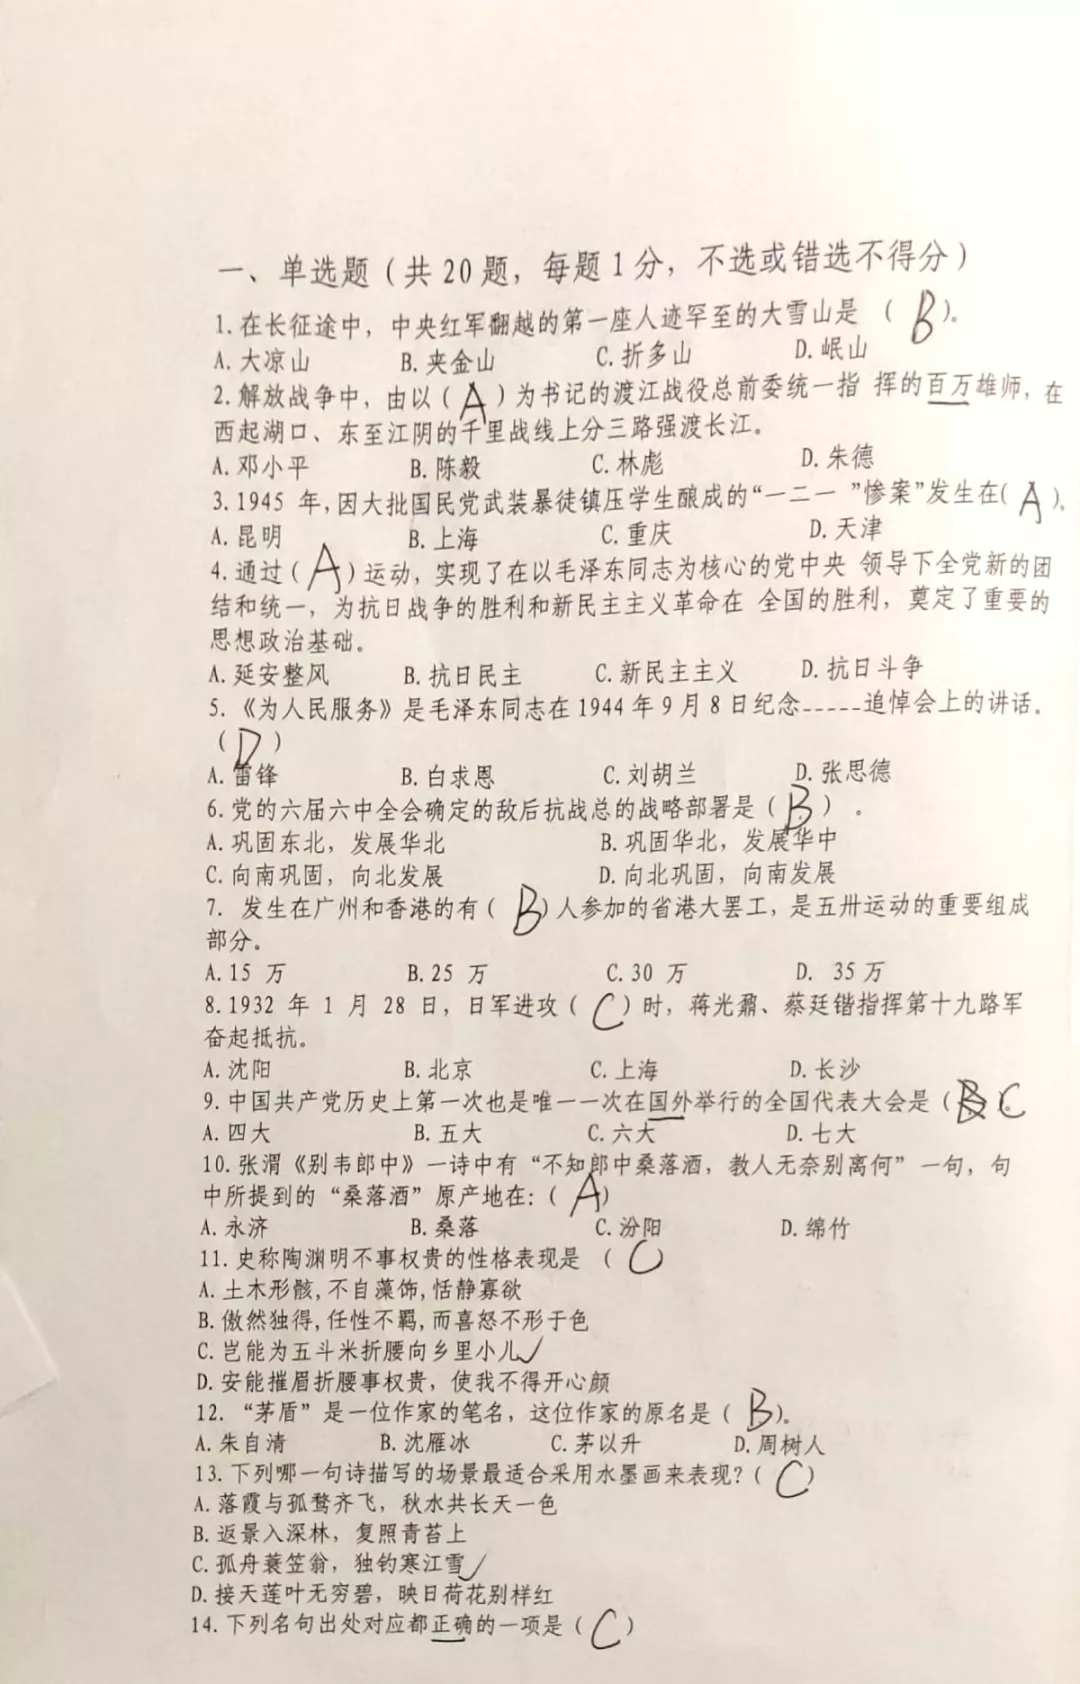 一、单选题（共20题，每题1分，不选或错选不得分）
1.在长征途中，中央红军翻越的第一座人迹罕至的大雪山是 （ B ）。
A.大凉山 B.夹金山 C.折多山 D.岷山
2.解放战争中，由以（ A ）为书记的渡江战役总前委统一指 挥的百万雄师，在
西起湖口、东至江阴的千里战线上分三路强渡长江。
A.邓小平 B.陈毅 C.林彪 D.朱德
3.1945 年，因大批国民党武装暴徒镇压学生酿成的“一二一 ”惨案”发生在( A )。
A.昆明 B.上海 C.重庆 D.天津
4.通过（ A ）运动，实现了在以毛泽东同志为核心的党中央 领导下全党新的团
结和统一，为抗日战争的胜利和新民主主义革命在 全国的胜利，奠定了重要的
思想政治基础。
A.延安整风 B.抗日民主 C.新民主主义 D.抗日斗争
5.《为人民服务》是毛泽东同志在1944年9月8日纪念-----追悼会上的讲话。
（ D ）
A.雷锋 B.白求恩 C.刘胡兰 D.张思德
6.党的六届六中全会确定的敌后抗战总的战略部署是（ B ） 。
A.巩固东北，发展华北 B.巩固华北，发展华中
C.向南巩固，向北发展 D.向北巩固，向南发展
7. 发生在广州和香港的有（ B ）人参加的省港大罢工，是五卅运动的重要组成
部分。
A.15 万 B.25 万 C.30 万 D. 35万
8.1932 年 1 月 28 日，日军进攻（ C ）时，蒋光鼐、蔡廷锴指挥第十九路军
奋起抵抗。
A.沈阳 B.北京 C.上海 D.长沙
9.中国共产党历史上第一次也是唯一一次在国外举行的全国代表大会是（ B C
A.四大 B.五大 C.六大 D.七大
10.张渭《别韦郎中》一诗中有“不知郎中桑落酒，教人无奈别离何”一句，句
中所提到的“桑落酒”原产地在:（ A ）
A.永济 B.桑落 C.汾阳 D.绵竹
11.史称陶渊明不事权贵的性格表现是 （ C ）
A.土木形骸,不自藻饰,恬静寡欲
B.傲然独得,任性不羁,而喜怒不形于色
C.岂能为五斗米折腰向乡里小儿✓
D.安能摧眉折腰事权贵，使我不得开心颜
12.“茅盾”是一位作家的笔名，这位作家的原名是（ B ）。
A.朱自清 B.沈雁冰 C.茅以升 D.周树人
13.下列哪一句诗描写的场景最适合采用水墨画来表现?（ C ）
A.落霞与孤鹜齐飞，秋水共长天一色
B.返景入深林，复照青苔上
C.孤舟蓑笠翁，独钓寒江雪✓
D.接天莲叶无穷碧，映日荷花别样红
14.下列名句出处对应都正确的一项是（ C ）